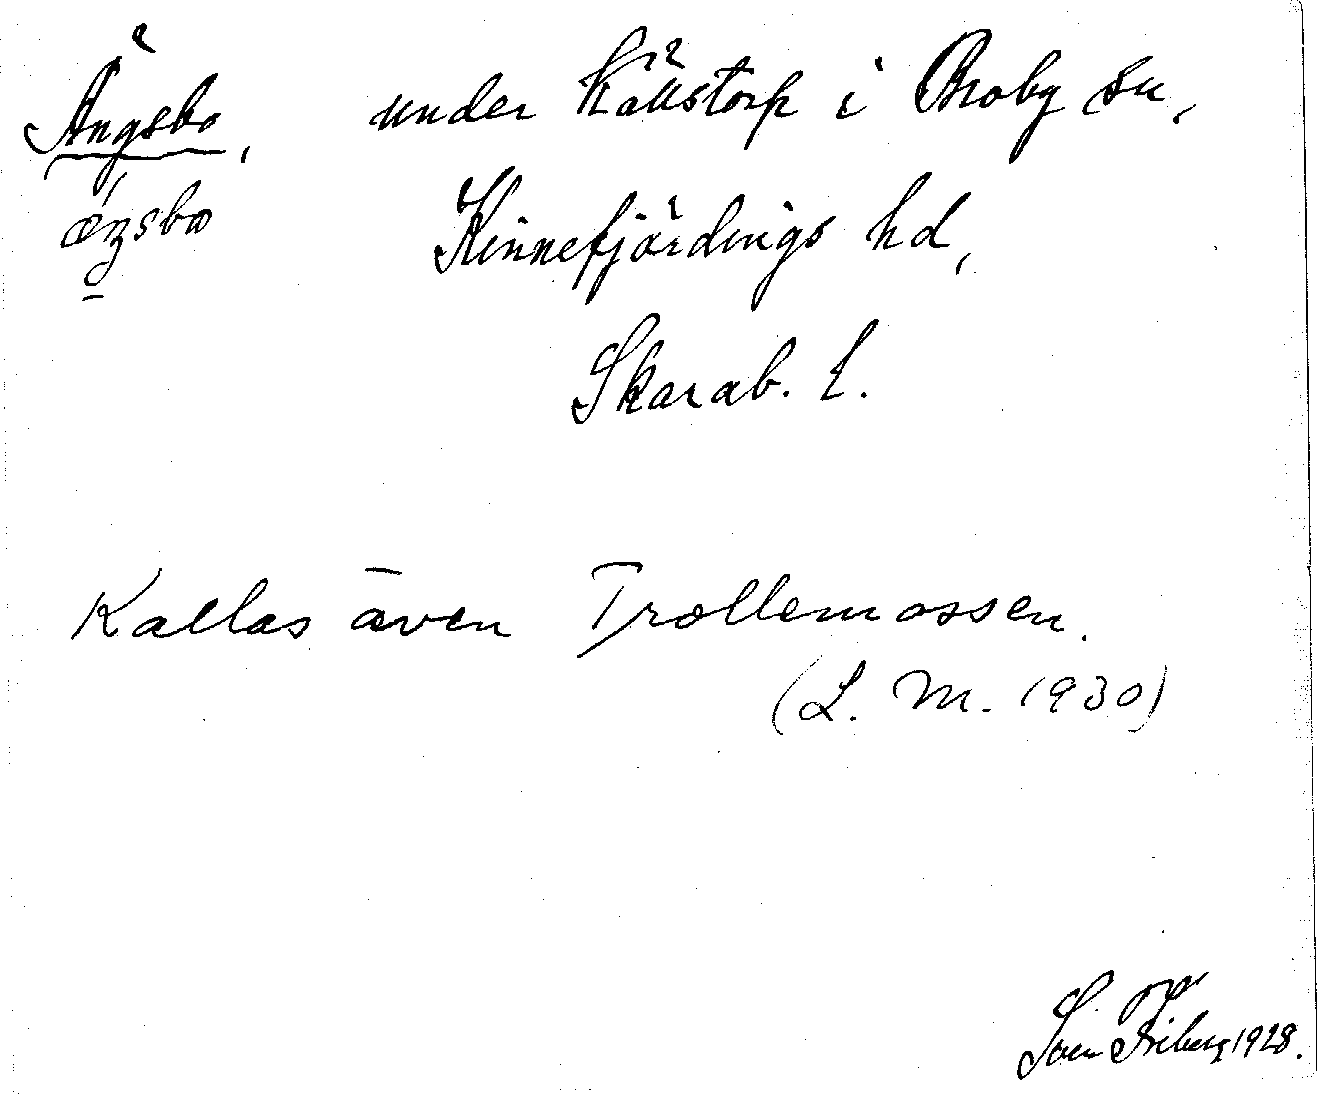 Ängsbo, under Källstorp i Broby sn,
Kinnefjärdings hd,
Skarab. l.
Kallas även Trollemossen.
(L. M. 1930)
Sven Friberg 1928.